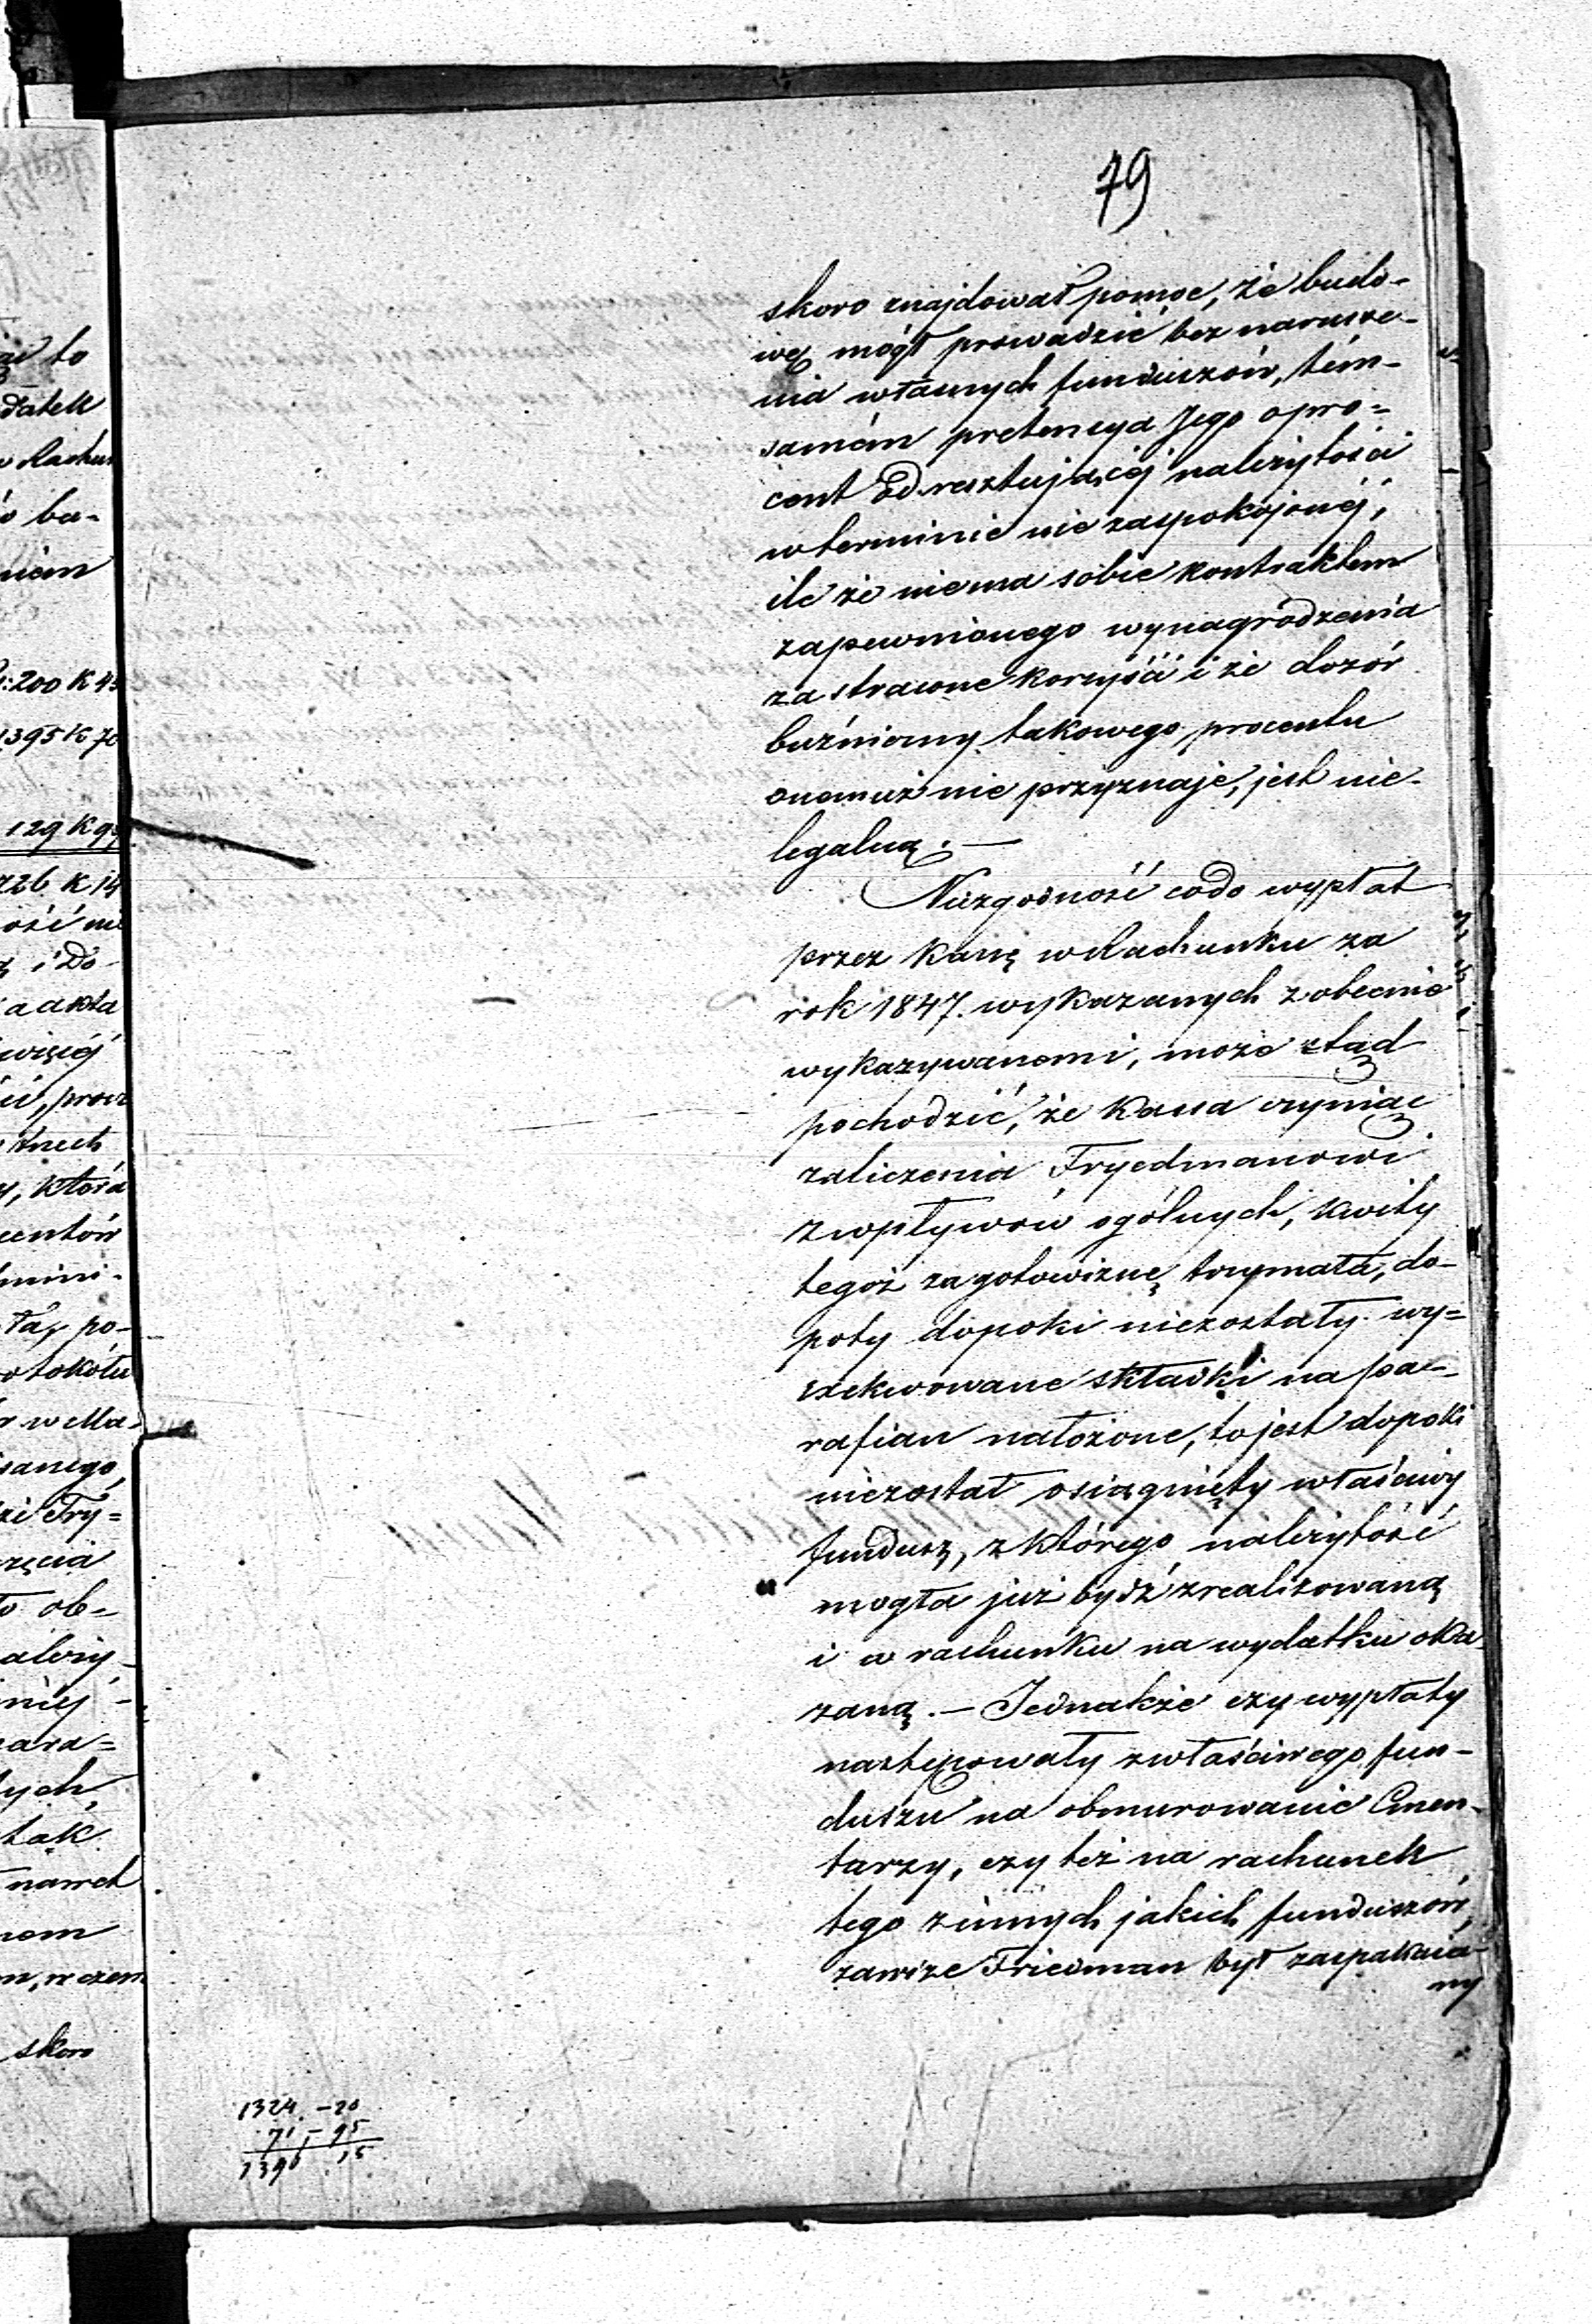 79
skoro znajdował pomoc, że budo-
wę mógł prowadzić bez narusze-
nia własnych funduszów, tém-
samém pretensya Jego o pro=
cent od resztującéj należytości
w terminie nie zaspokojonéj,
ile że nie ma sobie kontraktem
zapewnionego wynagrodzenia
za stracone korzyści i że dozór
bużniczny takowego procentu
onemuż nie przyznaje, jest nie-
legalną. —
Niezgodność co do wypłat
przez Kassę w Rachunku za
rok 1847. wykazanych z obecnie
wykazywanemi, może ztąd
pochodzić, że Kassa czyniąc
zaliczenia Fryedmanowi
z wpływów ogólnych, kwity
tegoż za gotowiznę trzymała, do-
poty dopoki niezostały wy=
exekwowane składki na pa-
rafian nałożone, to jest dopoki
niezostał osiągnięty właściwy
fundusz, z którego należytość
mogła już bydź zrealizowaną
i w rachunku na wydatku oka
zaną. — Jednakże czy wypłaty
następowały z właściwego fun-
duszu na obmurowanie Cmen-
tarzy, czy też na rachunek
tego z innych jakich funduszów,
zawsze Friedman był zaspakaia-
ny
1324. – 20
71, – 95
1396 15
to
datek
ba-
niem
: 200 K 43
1395 K 70
129 K 99
726 K 14
ość nie
i Do-
a akta
, która
centów
po-
otokółu
w Ma-
sanego
że Fry=
ob-
tych,
tak
nawet
skoro